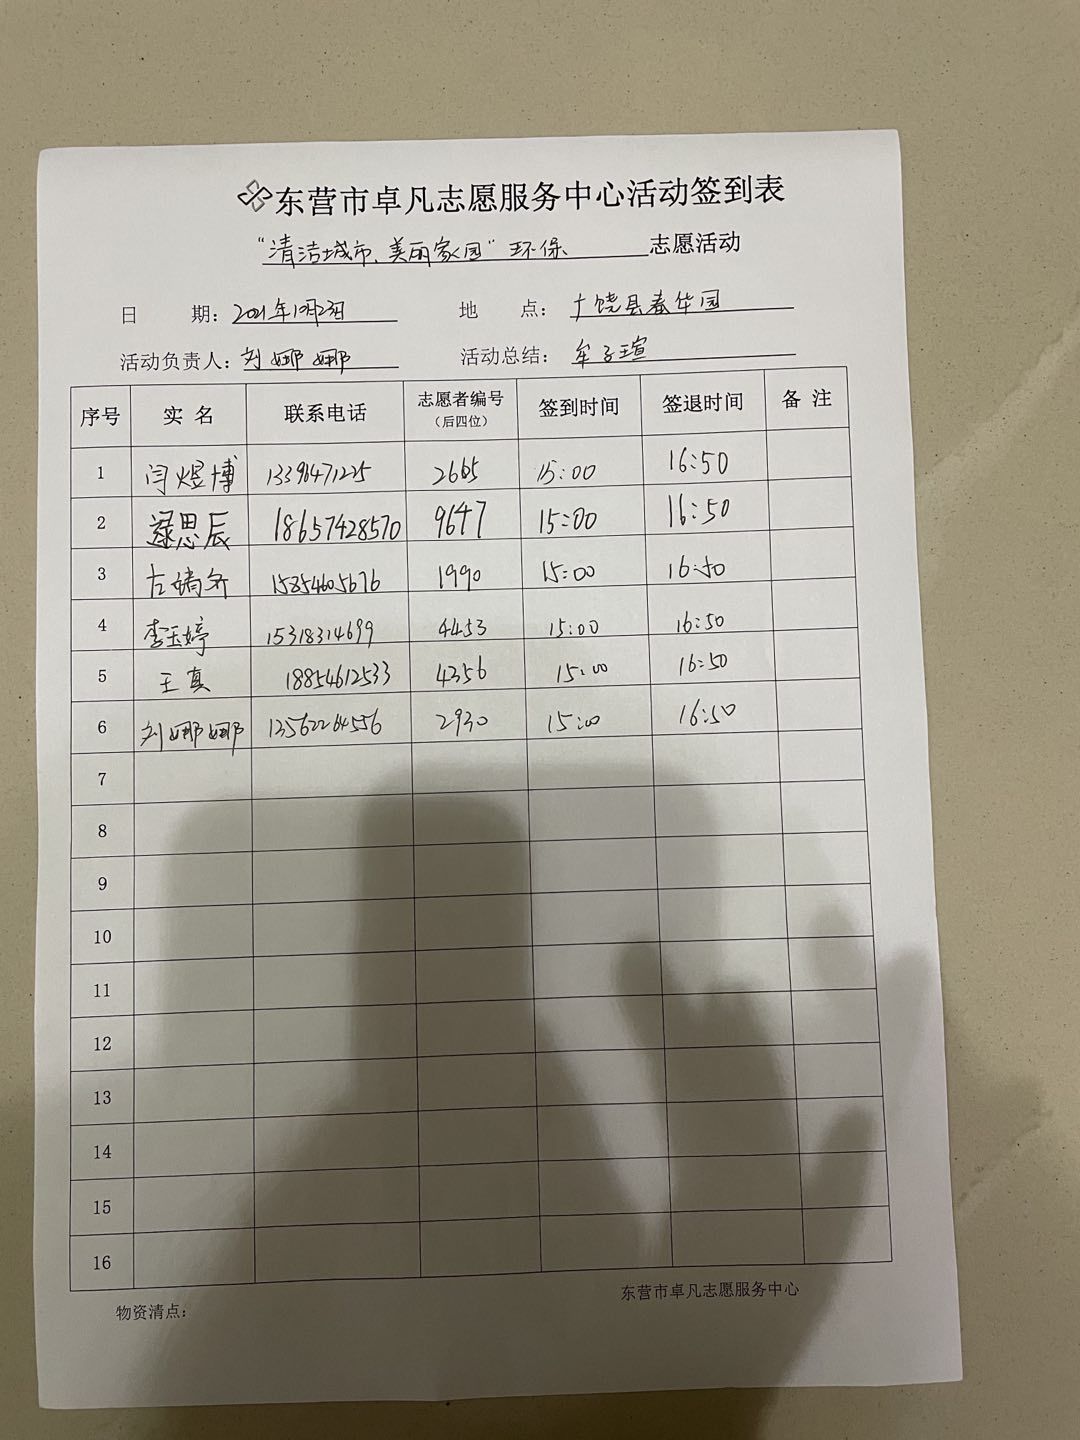 东营市卓凡志愿服务中心活动签到表
“清洁城市、美丽家园”环保 志愿活动
日 期：2021年10月23日 地 点：广饶县春华园
活动负责人：刘娜娜 活动总结：牟子瑄
序号 实名 联系电话 志愿者编号（后四位） 签到时间 签退时间 备注
1 闫煜博 13396471225 2665 15:00 16:50
2 逯思辰 18657428570 9647 15:00 16:50
3 15854605676 1990 15:00 16:50
4 李玉婷 15318314699 4453 15:00 16:50
5 王真 18854612533 4356 15:00 16:50
6 刘娜娜 13562264556 2930 15:00 16:50
7
8
9
10
11
12
13
14
15
16
东营市卓凡志愿服务中心
物资清点：